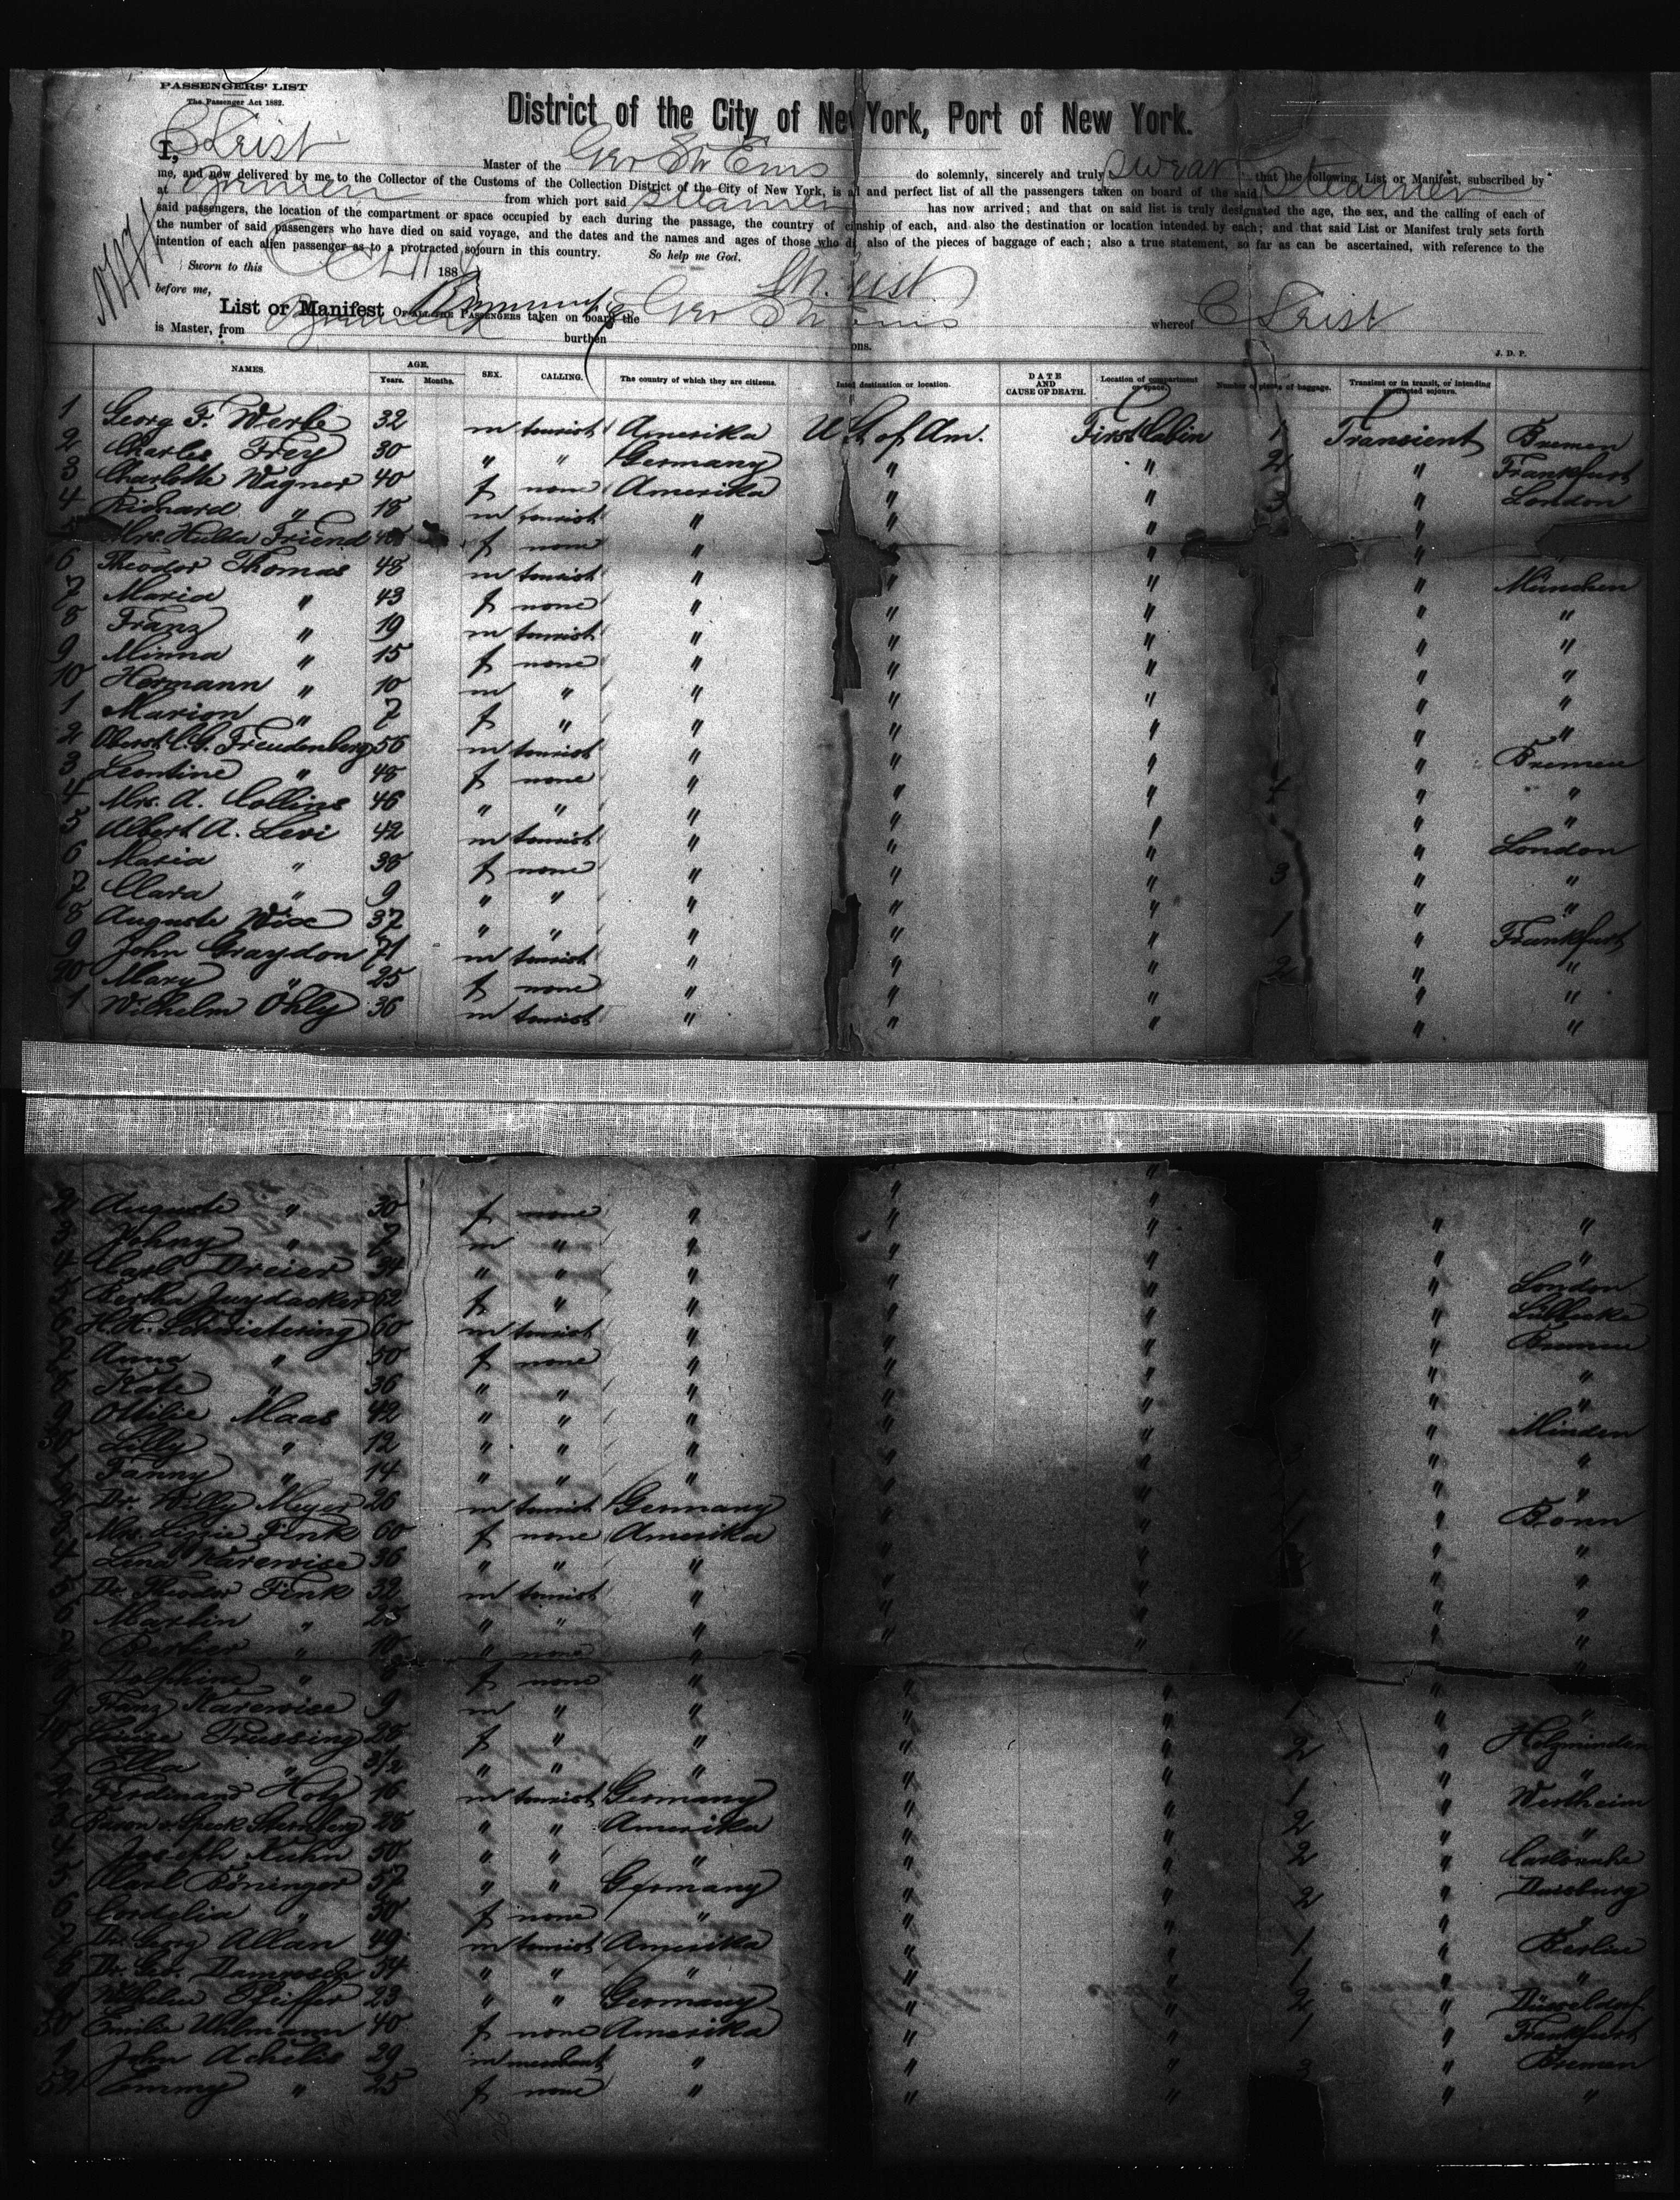 PASSENGERS' LIST
The Passenger Act 1882.
District of the City of New York, Port of New York.
I, C Leist Master of the Ger Str Ems do solemnly, sincerely and truly swear that the following List or Manifest, subscribed by
me, and now delivered by me to the Collector of the Customs of the Collection District of the City of New York, is a and perfect list of all the passengers taken on board of the said Steamer
at Bremen from which port said Steamer has now arrived; and that on said list is truly designated the age, the sex, and the calling of each of
said passengers, the location of the compartment or space occupied by each during the passage, the country of inship of each, and also the destination or location intended by each; and that said List or Manifest truly sets forth
the number of said passengers who have died on said voyage, and the dates and the names and ages of those who di also of the pieces of baggage of each; also a true statement, so far as can be ascertained, with reference to the
intention of each alien passenger as to a protracted sojourn in this country. So help me God.
Sworn to this Oct 188
before me, Ch. Leist
List or Manifest OF ALL THE PASSENGERS taken on board the Ger Str Ems whereof C Leist
is Master, from Bremen burthen ons.
J. D. P.
NAMES. AGE. Years. Months. SEX. CALLING. The country of which they are citizens. Inted destination or location. DATE AND CAUSE OF DEATH. Location of compartment or space. Number of pieces of baggage. Transient or in transit, or intending protracted sojourn.
1 Georg F. Werle 32 m tourist Amerika U St of Am. First Cabin 1 Transient Bremen
2 Charles Frey 30 " " Germany " " 2 " Frankfurt
3 Charlotte Wagner 40 f none Amerika " " 3 " London
4 Richard " 18 m tourist " " " "
5 Mrs. Hulda Friend f none " " "
6 Theodor Thomas 48 m tourist " " " " München
7 Maria " 43 f none " " " " "
8 Franz " 19 m tourist " " " " "
9 Minna " 15 f none " " " " "
10 Hermann " 10 m " " " " " "
1 Marion " 7 f " " " " " "
2 Oberst C. v. Freudenberg 56 m tourist " " " " Bremen
3 Leontine " 48 f none " " " " "
4 Mrs. A. Collins 46 " " " " " 4 " "
5 Albert A. Levi 42 m tourist " " " " London
6 Maria " 38 f none " " " 3 " "
7 Clara " 9 " " " " " " "
8 Auguste Wix 37 " " " " " 1 " Frankfurt
9 John Graydon 71 m tourist " " " 2 " "
20 Mary " 25 f none " " " " "
1 Wilhelm Ohly 36 m tourist " " " " "
2 Auguste " 30 f none " " " "
3 Johny " 7 m " " " " "
4 Carl Dreier 24 " " " " " London
5 Bertha 62 f " " " " Lübbecke
6 H. H. Schwietering 60 m tourist " " " Bremen
7 Anna " 50 f none " " " "
8 Kate " 36 " " " " " "
9 Ottilie Maas 42 " " " " " Minden
30 Lilly " 12 " " " " " "
1 Fanny " 14 " " " " " "
2 Dr. Willy Meyer 26 m tourist Germany " 1 " Bonn
3 Mrs. Lissie Fink 60 f none Amerika " 1 " "
4 Lena Karewise 36 " " " " " "
5 Dr. Theodor Fink 32 m tourist " " " "
6 Martin " " " " " " "
7 " 10 " none " " "
8 Delphine " f none " " " "
9 Franz Karewise 9 m " " " " 1 " "
40 Louise Trussing 28 f " " " " 2 " Holzminden
1 Ella " 3½ " " " " " " "
2 Ferdinand Hotz 16 m tourist Germany " " 1 " Wertheim
3 Baron v. Speck Sternberg 28 " " Amerika " " 2 " "
4 Joseph Kuhn 50 " " " " " 2 " Carlsruhe
5 Carl Böninger 57 " " Germany " " 2 " Duisburg
6 Cordelia " 50 f none " " " " "
7 Dr. Georg Allan 49 m tourist Amerika " " 1 " Berlin
8 Dr. Geo. 34 " " " " " 1 " "
9 Wilhelm Pfeiffer 23 " " Germany " " 2 " Düsseldorf
50 Emilie Uhlmann 40 f none Amerika " " 1 " Frankfurt
1 John Achelis 29 m merchant " " " 3 " Bremen
52 Emmy " 25 f none " " " " "